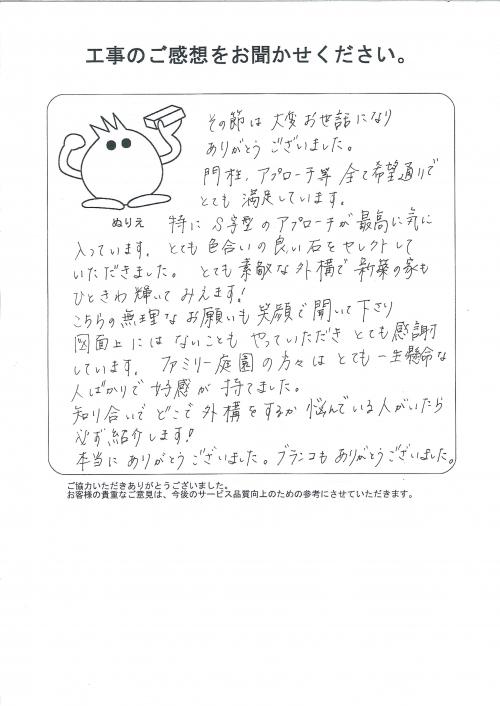 工事のご感想をお聞かせください。
その節は大変お世話になり
ありがとうございました。
門柱、アプローチ等 全て希望通りで
とても 満足しています。
ぬりえ
特に S字型のアプローチが最高に気に
入っています。とても色合いの良い石をセレクトして
いただきました。とても素敵な外構で新築の家も
ひときわ輝いてみえます!
こちらの無理なお願いも笑顔で聞いて下さり
図面上にはないことも やっていただき とても感謝
しています。ファミリー庭園の方々は とても一生懸命な
人ばかりで 好感が 持てました。
知り合いで どこで 外構をするか 悩んでいる人がいたら
必ず紹介します!!
本当に ありがとうございました。ブランコも ありがとうございました。
ご協力いただきありがとうございました。
お客様の貴重なご意見は、今後のサービス品質向上のための参考にさせていただきます。